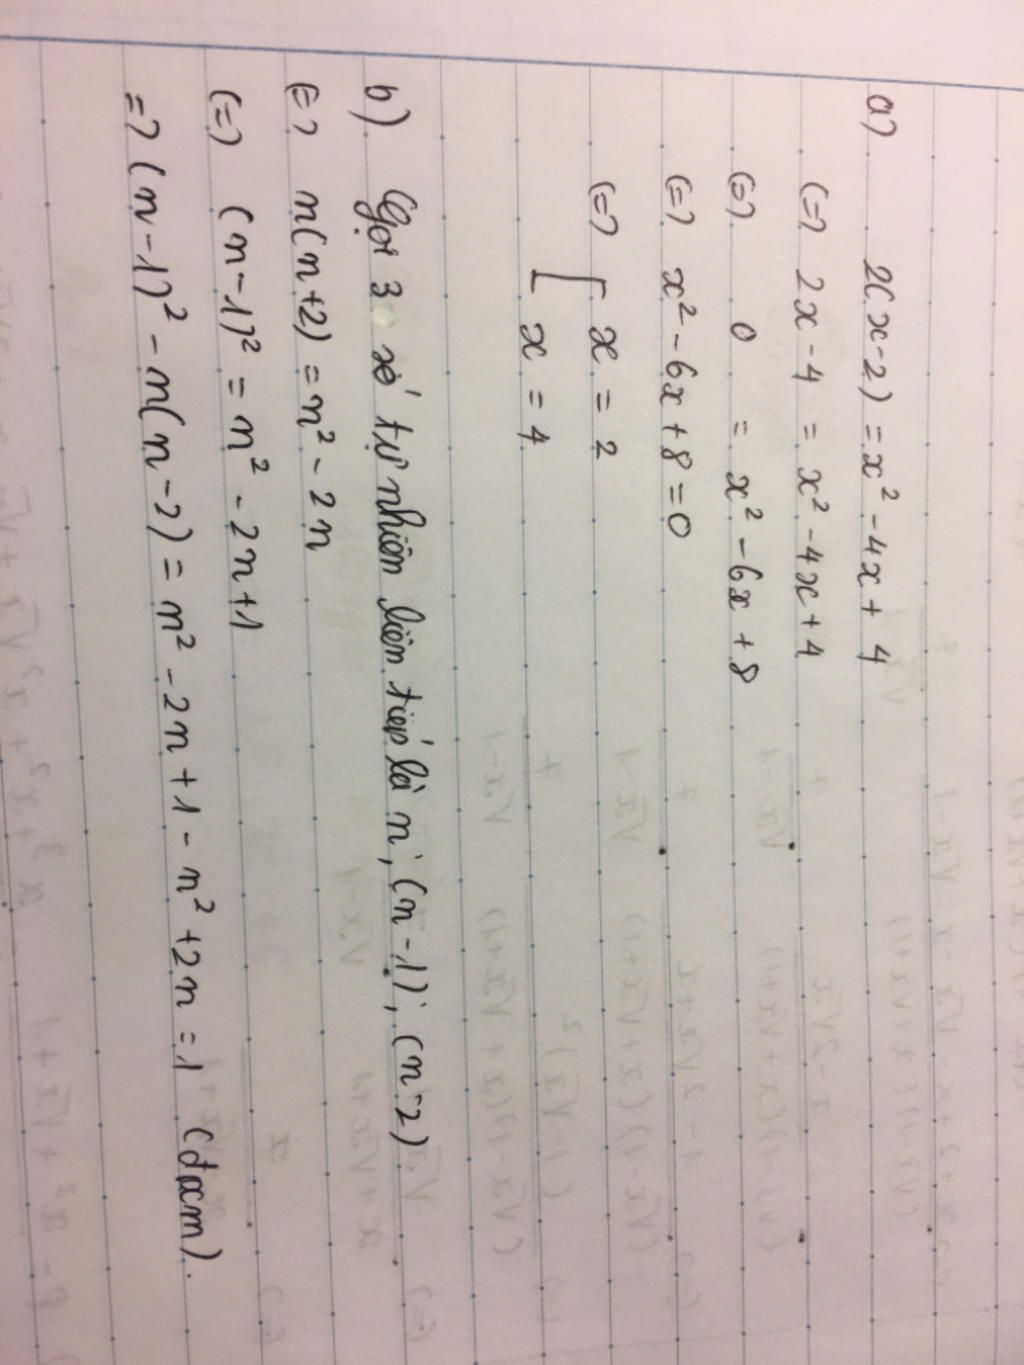 a) 2(x-2) = x² - 4x + 4
(=) 2x - 4 = x² - 4x + 4
(=) 0 = x² - 6x + 8
(=) x² - 6x + 8 = 0
(=) [ x = 2
x = 4
b) Gọi 3 số tự nhiên liên tiếp là n; (n-1); (n-2)
(=) n(n+2) = n² - 2n
(=) (n-1)² = n² - 2n + 1
=) (n-1)² - n(n-2) = n² - 2n + 1 - n² + 2n = 1 (đpcm).